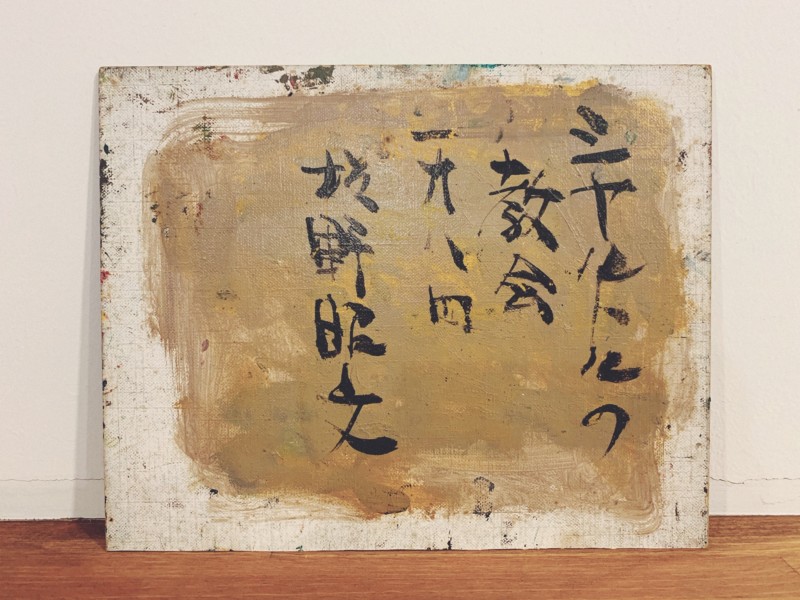 シャルトルの
教会
一九八四
坂野昭文